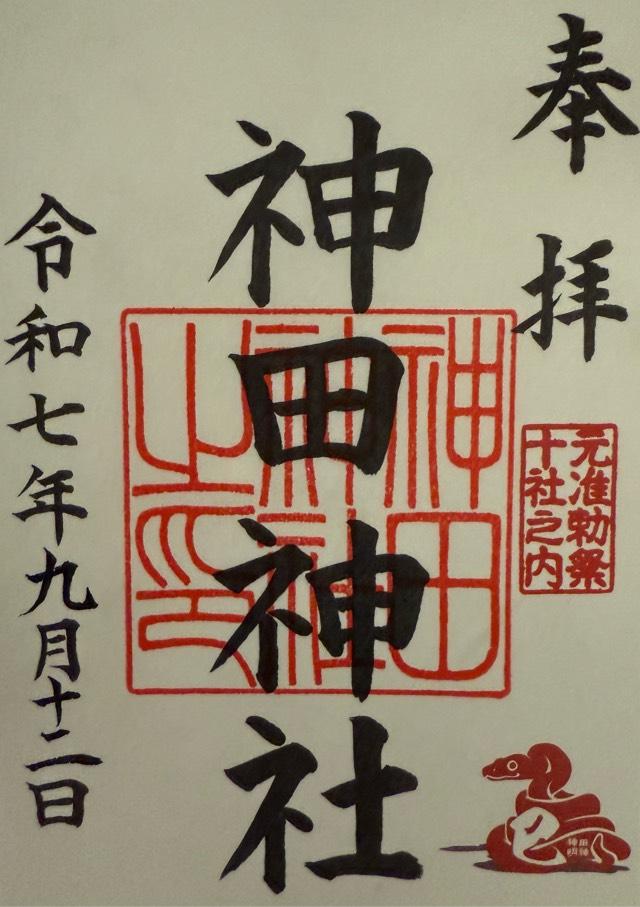 奉拝
元准勅祭
十社之内
神田神社
神田
神社
之印
巳
神田
明神
令和七年九月十二日